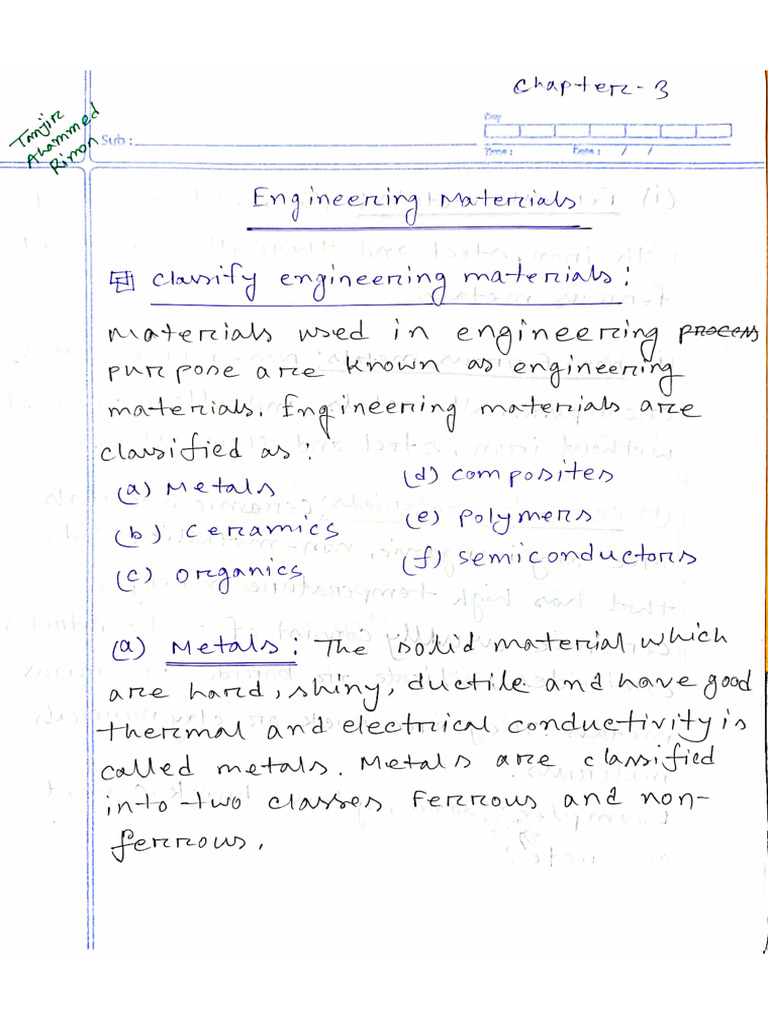 Chapter-3
Tanjir
Ahammed
Rimon
Day
Sub:
Time: Date: / /
Engineering Materials
Classify engineering materials:
Materials used in engineering process
purpose are known as engineering
materials. Engineering materials are
classified as:
(a) Metals
(b) Ceramics
(c) Organics
(d) composites
(e) polymers
(f) semiconductors
(a) Metals: The solid material which
are hard, shiny, ductile and have good
thermal and electrical conductivity is
called metals. Metals are classified
into two classes Ferrous and non-
ferrous.